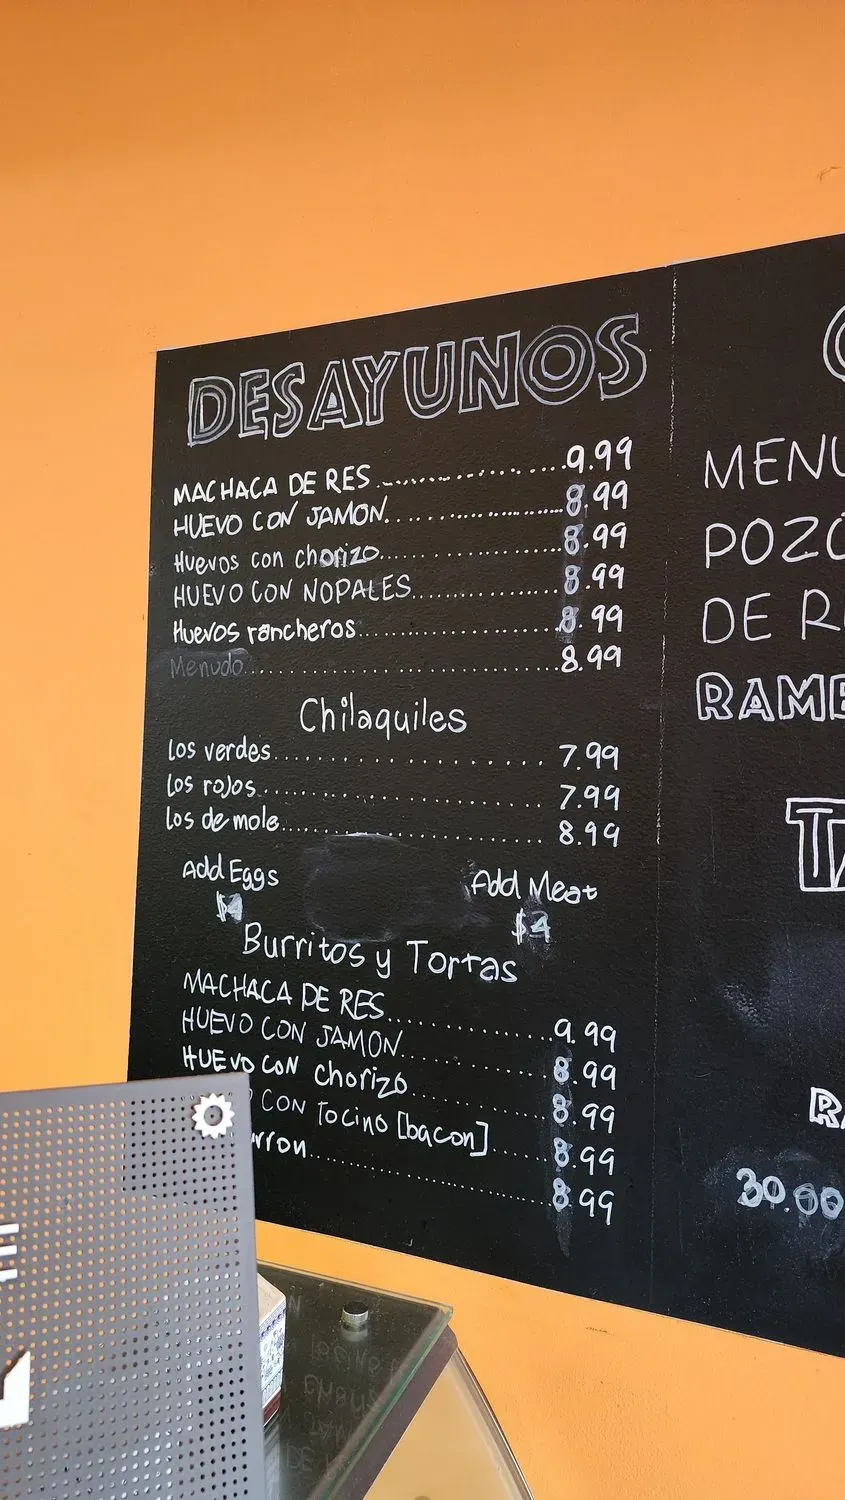 DESAYUNOS
MACHACA DE RES..................9.99
HUEVO CON JAMON..................8.99
Huevos con chorizo..................8.99
HUEVO CON NOPALES..................8.99
Huevos rancheros..................8.99
Menudo..................8.99
Chilaquiles
Los verdes..................7.99
Los rojos..................7.99
Los de mole..................8.99
Add Eggs
Add Meat
$4
Burritos y Tortas
MACHACA DE RES..................9.99
HUEVO CON JAMON..................8.99
HUEVO CON chorizo..................8.99
CON Tocino [bacon]..................8.99
..................8.99
POZO
DE R
30.00